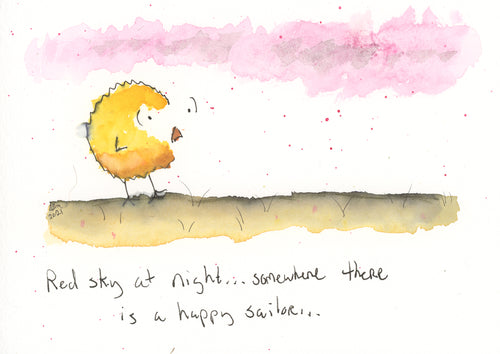 2021
Red sky at night... somewhere there
is a happy sailor...